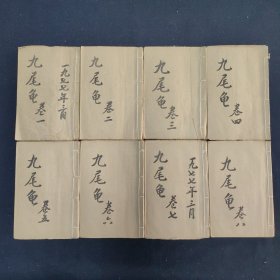 九尾龟 卷一
一九七七年二月
九尾龟 卷二
九尾龟 卷三
九尾龟 卷四
九尾龟 卷五
九尾龟 卷六
九尾龟 卷七
一九七七年二月
九尾龟 卷八